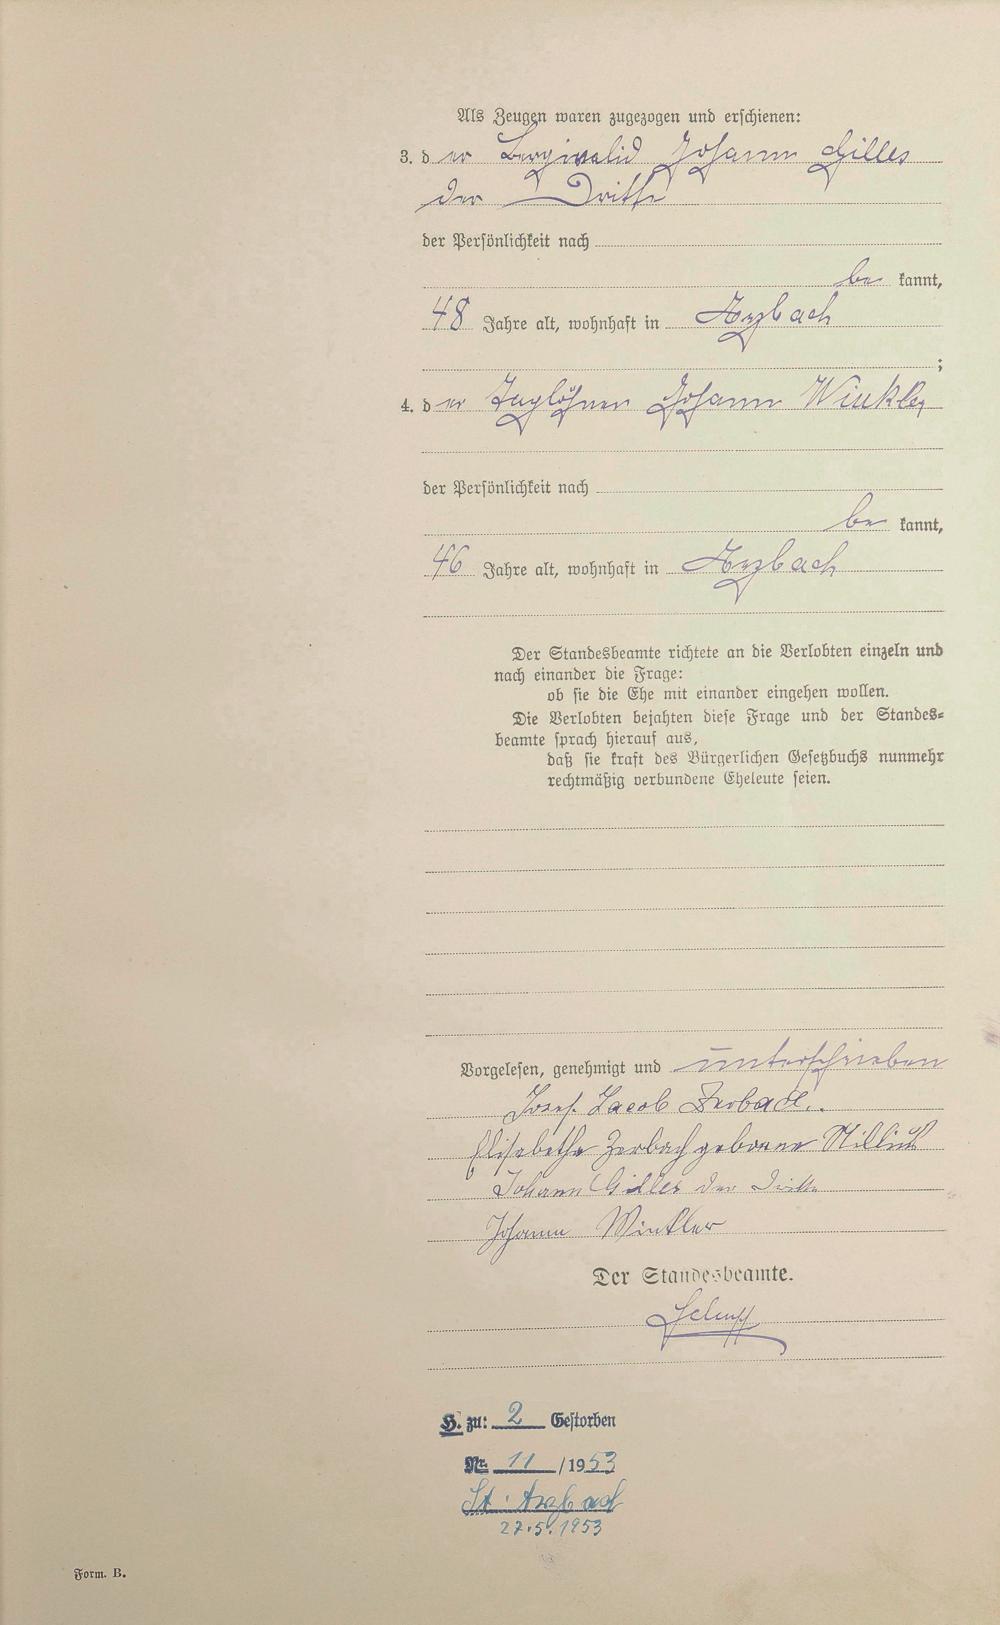 Als Zeugen waren zugezogen und erschienen:
3. der Berginvalid Johann Gilles
der Dritte
der Persönlichkeit nach
be kannt,
48 Jahre alt, wohnhaft in Arzbach
;
4. der Taglöhner Johann Winkler
der Persönlichkeit nach
be kannt,
46 Jahre alt, wohnhaft in Arzbach
Der Standesbeamte richtete an die Verlobten einzeln und
nach einander die Frage:
ob sie die Ehe mit einander eingehen wollen.
Die Verlobten bejahten diese Frage und der Standes-
beamte sprach hierauf aus,
daß sie kraft des Bürgerlichen Gesetzbuchs nunmehr
rechtmäßig verbundene Eheleute seien.
Vorgelesen, genehmigt und unterschrieben
Josef Jacob Zerbach.
Elisabetha Zerbach geborene
Johann Gilles der Dritte
Johann Winkler
Der Standesbeamte.
H. zu: 2 Gestorben
Nr. 11 /1953
St. Arzbach
27.5.1953
Form. B.